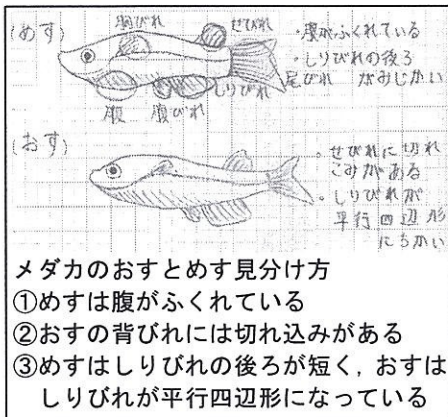 (めす)
胸びれ
せびれ
・腹がふくれている
・しりびれの後ろ
がみじかい
尾びれ
しりびれ
腹
腹びれ
(おす)
・せびれに切れ
こみがある
・しりびれが
平行四辺形
にちかい
メダカのおすとめす見分け方
①めすは腹がふくれている
②おすの背びれには切れ込みがある
③めすはしりびれの後ろが短く，おすは
しりびれが平行四辺形になっている